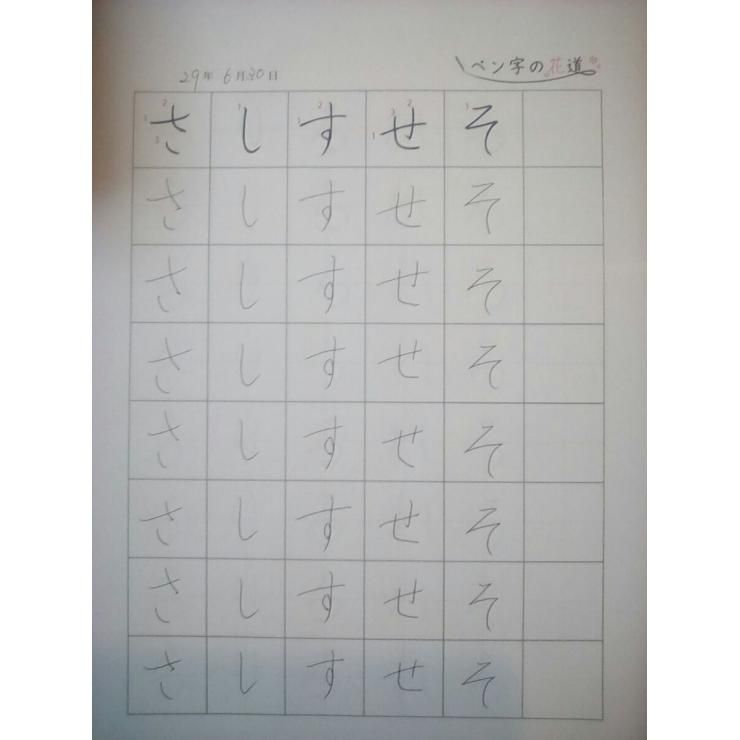 29年 6月30日 ペン字の花道
さ し す せ そ
さ し す せ そ
さ し す せ そ
さ し す せ そ
さ し す せ そ
さ し す せ そ
さ し す せ そ
さ し す せ そ